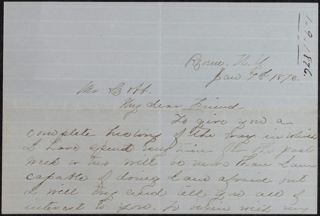 Rome, N.Y.
Jan 9th 1876.
Mr Bott.
My dear Friend.
To give you a
complete history of the way in which
I have spent my time for the past
week or two will be more than I am
capable of doing I am afraid but
I will try and tell you all of
interest to you, to begin with my